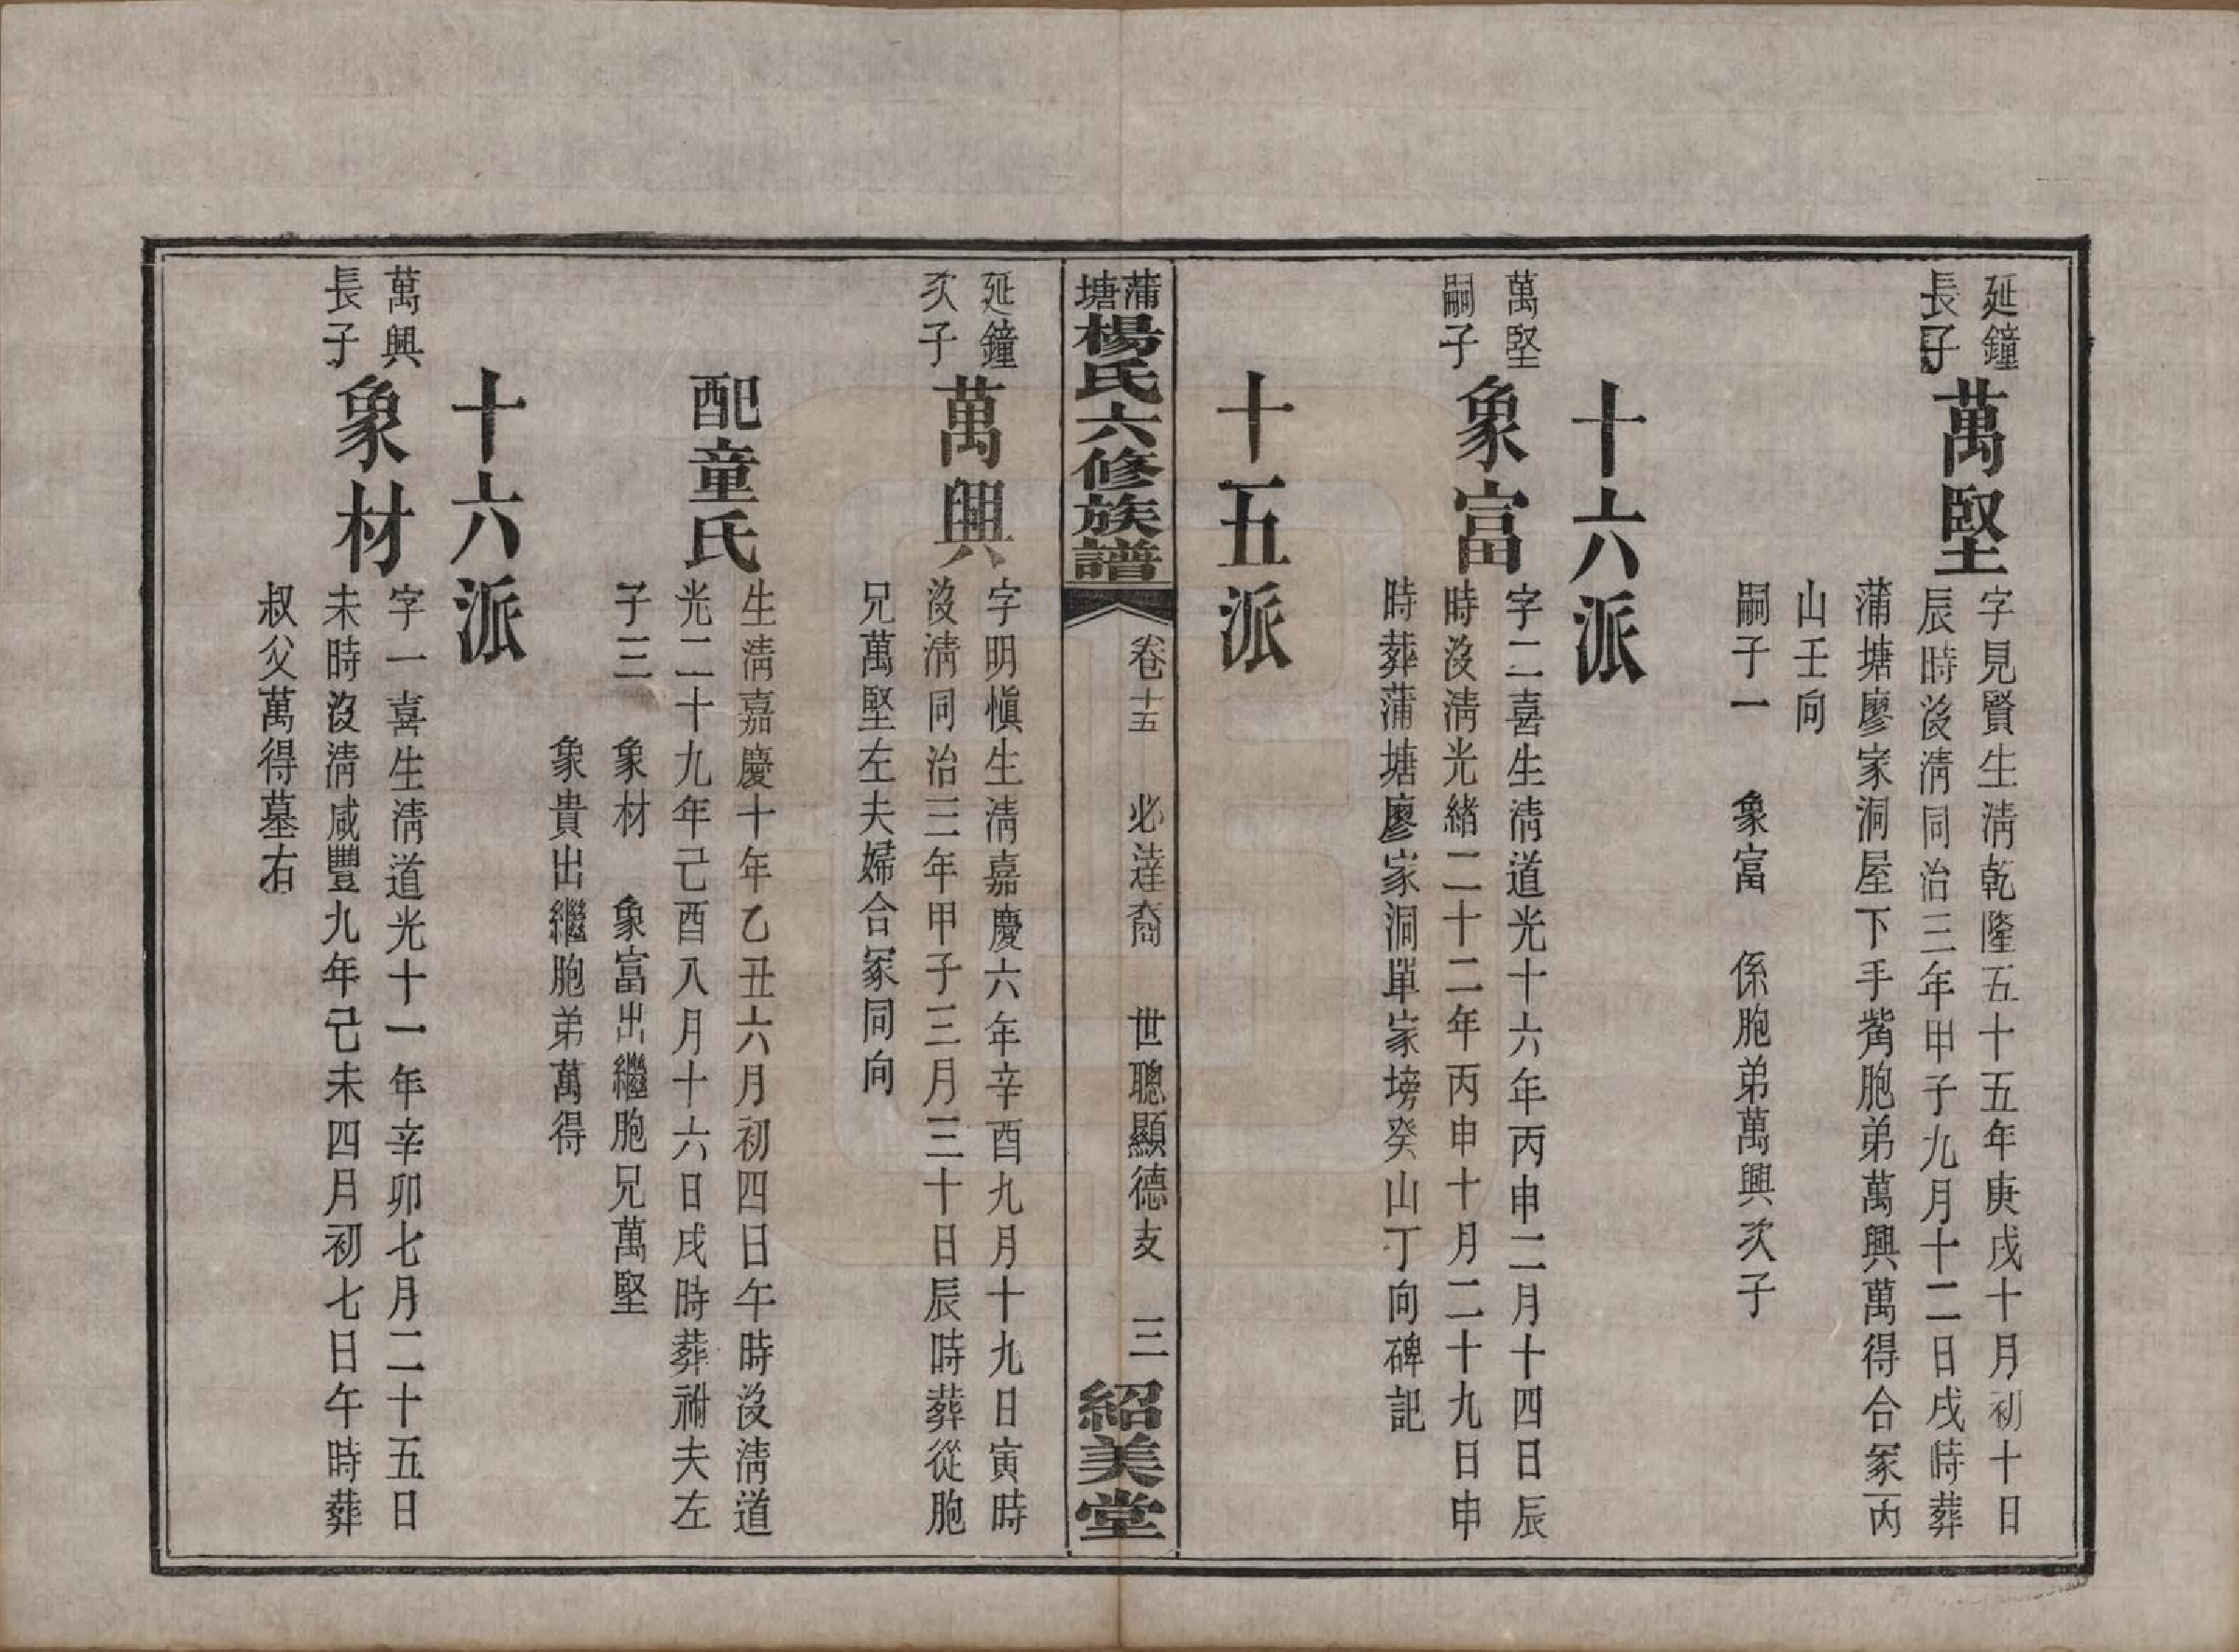 延鐘
長子
萬堅
字見賢生淸乾隆五十五年庚戌十月初十日
辰時沒淸同治三年甲子九月十二日戌時葬
蒲塘廖家洞屋下手觜胞弟萬興萬得合冢丙
山壬向
嗣子一　象富　係胞弟萬興次子
十六派
萬堅
嗣子
象富
字二喜生淸道光十六年丙申二月十四日辰
時沒淸光緖二十二年丙申十月二十九日申
時葬蒲塘廖家洞單家塝癸山丁向碑記
十五派
蒲塘楊氏六修族譜
卷十五　必達裔　世聰顯德支　三
紹美堂
延鐘
次子
萬興
字明愼生淸嘉慶六年辛酉九月十九日寅時
沒淸同治三年甲子三月三十日辰時葬從胞
兄萬堅左夫婦合冢同向
配童氏
生淸嘉慶十年乙丑六月初四日午時沒淸道
光二十九年己酉八月十六日戌時葬祔夫左
子三　象材　象富出繼胞兄萬堅
象貴出繼胞弟萬得
十六派
萬興
長子
象材
字一喜生淸道光十一年辛卯七月二十五日
未時沒淸咸豐九年己未四月初七日午時葬
叔父萬得墓右